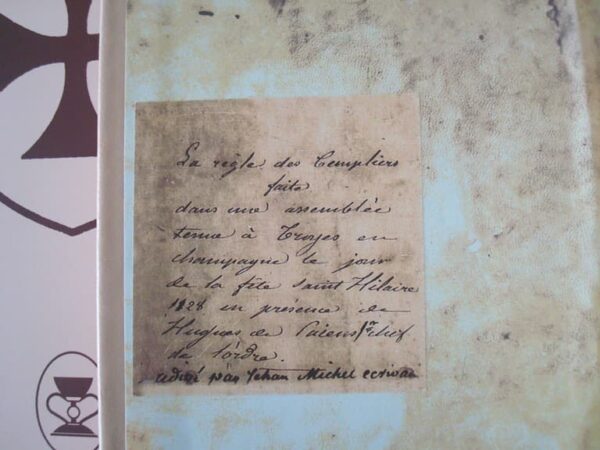 La règle des Templiers
faite
dans une assemblée
tenue à Troyes en
champagne le jour
de la fête Saint Hilaire
1128 en présence de
Hugues de Paiens 1er chef
de l'ordre.
par Jehan Michel ecrivan